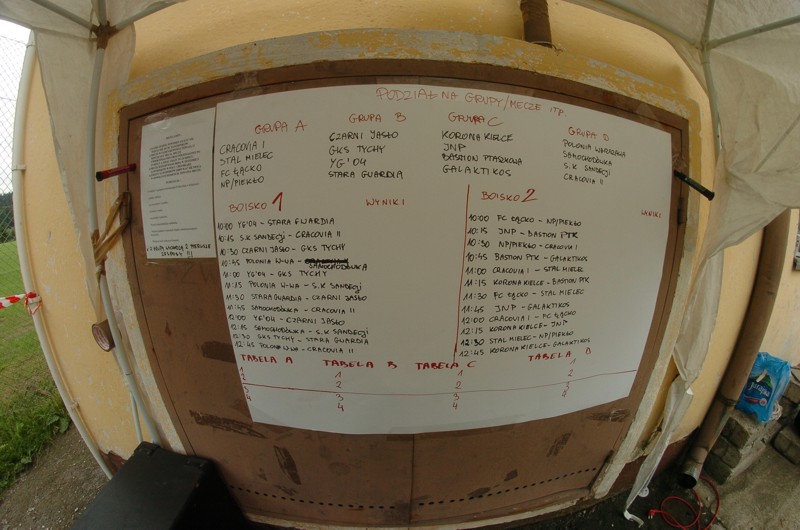 PODZIAŁ NA GRUPY/MECZE ITP.
GRUPA A
CRACOVIA I
STAL MIELEC
FC ŁĄCKO
NP/PIEKŁO
GRUPA B
CZARNI JASŁO
GKS TYCHY
YG'04
STARA GUARDIA
GRUPA C
KORONA KIELCE
JNP
BASTION PTASZKOWA
GALAKTIKOS
GRUPA D
POLONIA WARSZAWA
SAMOCHODÓWKA
S.K SANDECJI
CRACOVIA II
BOISKO 1 WYNIKI
10:00 YG'04 - STARA GWARDIA
10:15 S.K SANDECJI - CRACOVIA II
10:30 CZARNI JASŁO - GKS TYCHY
10:45 POLONIA W-WA -
SAMOCHODÓWKA
11:00 YG'04 - GKS TYCHY
11:15 POLONIA W-WA - S.K SANDECJI
11:30 STARA GUARDIA - CZARNI JASŁO
11:45 SAMOCHODÓWKA - CRACOVIA II
12:00 YG'04 - CZARNI JASŁO
12:15 SAMOCHODÓWKA - S.K SANDECJI
12:30 GKS TYCHY - STARA GUARDIA
12:45 POLONIA W-WA - CRACOVIA II
BOISKO 2 WYNIKI
10:00 FC ŁĄCKO - NP/PIEKŁO
10:15 JNP - BASTION PTK
10:30 NP/PIEKŁO - CRACOVIA I
10:45 BASTION PTK - GALAKTIKOS
11:00 CRACOVIA I - STAL MIELEC
11:15 KORONA KIELCE - BASTION PTK
11:30 FC ŁĄCKO - STAL MIELEC
11:45 JNP - GALAKTIKOS
12:00 CRACOVIA I - FC ŁĄCKO
12:15 KORONA KIELCE - JNP
12:30 STAL MIELEC - NP/PIEKŁO
12:45 KORONA KIELCE - GALAKTIKOS
TABELA A TABELA B TABELA C TABELA D
1 1 1 1
2 2 2 2
3 3 3 3
4 4 4